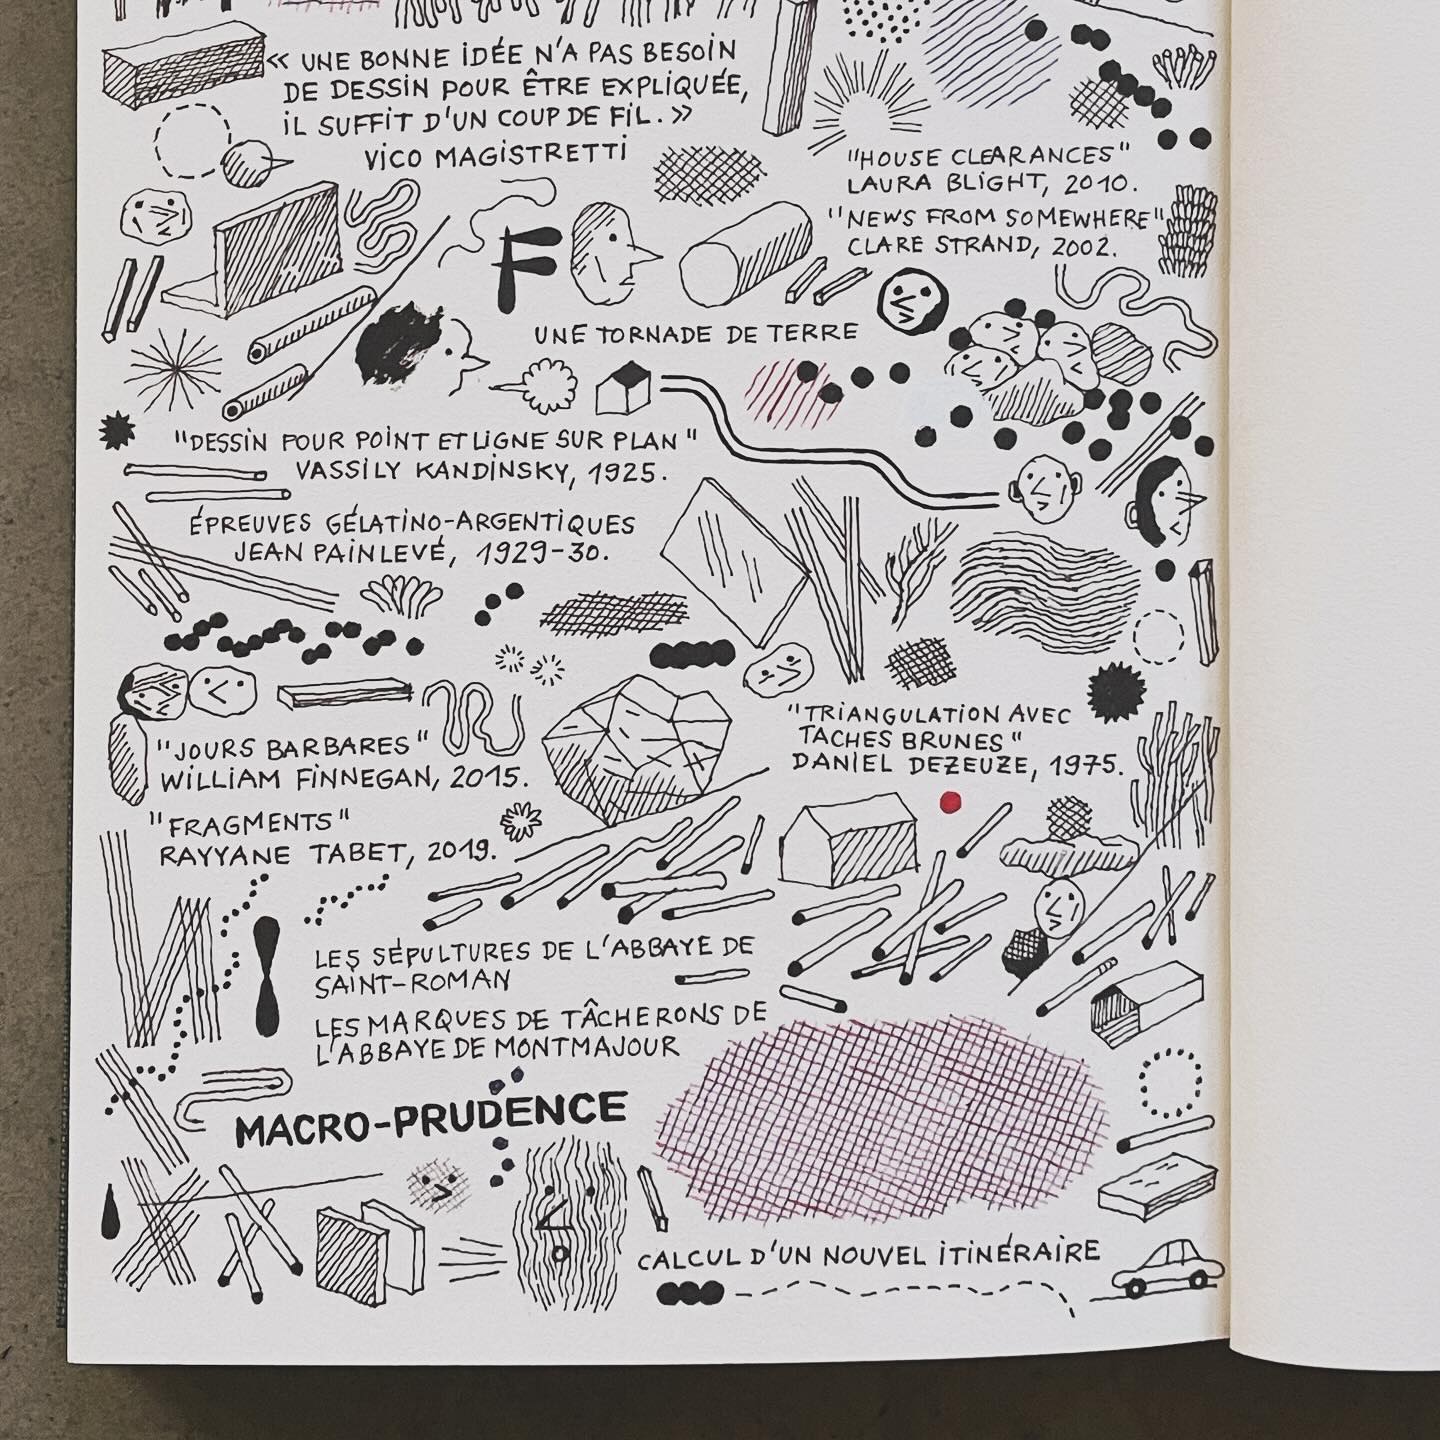 « UNE BONNE IDÉE N'A PAS BESOIN
DE DESSIN POUR ÊTRE EXPLIQUÉE,
IL SUFFIT D'UN COUP DE FIL. »
VICO MAGISTRETTI
"HOUSE CLEARANCES"
LAURA BLIGHT, 2010.
"NEWS FROM SOMEWHERE"
CLARE STRAND, 2002.
F
UNE TORNADE DE TERRE
"DESSIN POUR POINT ET LIGNE SUR PLAN"
VASSILY KANDINSKY, 1925.
ÉPREUVES GÉLATINO-ARGENTIQUES
JEAN PAINLEVÉ, 1929-30.
"TRIANGULATION AVEC
TACHES BRUNES"
DANIEL DEZEUZE, 1975.
"JOURS BARBARES"
WILLIAM FINNEGAN, 2015.
"FRAGMENTS"
RAYYANE TABET, 2019.
LES SÉPULTURES DE L'ABBAYE DE
SAINT-ROMAN
LES MARQUES DE TÂCHERONS DE
L'ABBAYE DE MONTMAJOUR
MACRO-PRUDENCE
CALCUL D'UN NOUVEL ITINÉRAIRE